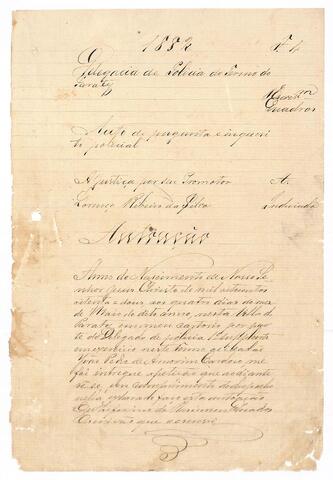 1882 Fl 1
Delegacia de Policia do Termo de
Paraty
Escrivão
Quadros
Auto de pergunta e inqueri
to policial
A Justiça por seu Promotor A.
Lourenço Ribeiro da Silva Indiciado
Autuação
Anno do Nascimento de Nosso Se
nhor Jesus Christo de mil oitocentos
oitenta e dous aos quatro dias do mez
de Maio do dito anno, nesta Villa de
Paraty, em meu cartorio por par
te do Delegado de policia
em exercicio neste Termo
Cardoso me
foi entregue a petição que ao diante
se vê, em cumprimento do despacho
nella exharado faço esta autuação
Eu Quadros
Escrivão que escrevi